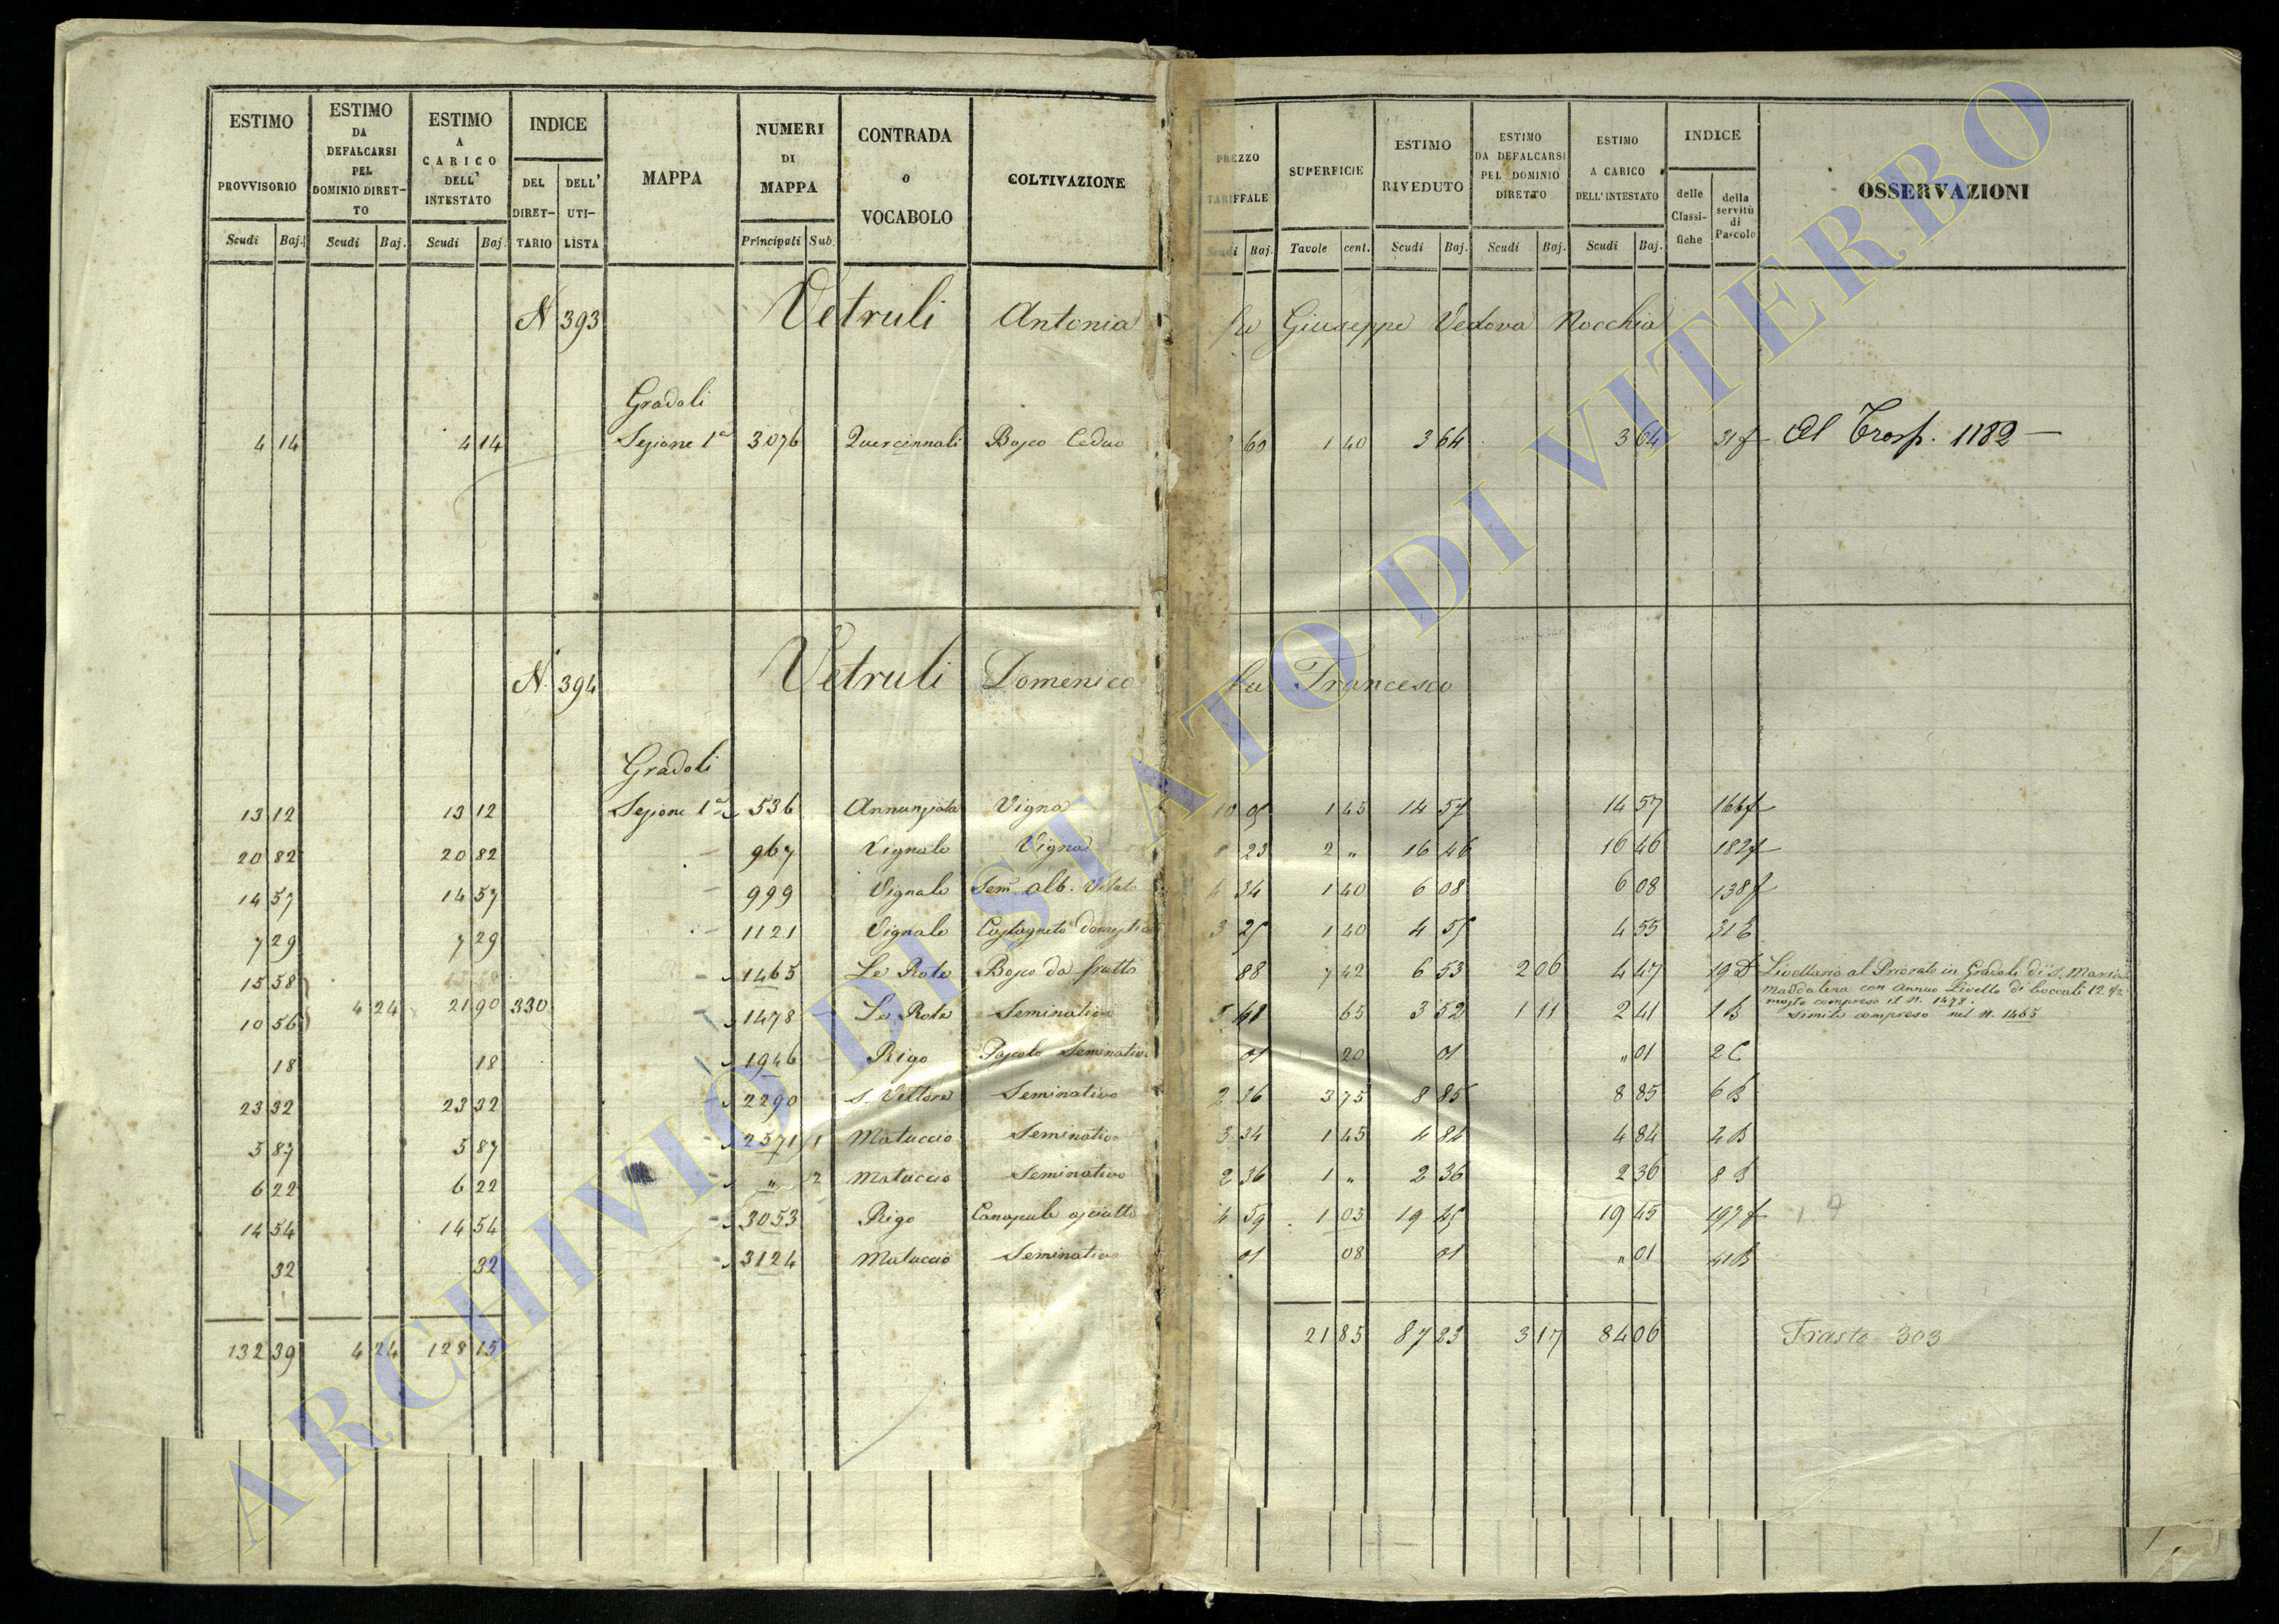 ESTIMO PROVVISORIO ESTIMO DA DEFALCARSI PEL DOMINIO DIRET-TO ESTIMO A CARICO DELL' INTESTATO INDICE MAPPA NUMERI DI MAPPA CONTRADA o VOCABOLO COLTIVAZIONE PREZZO TARIFFALE SUPERFICIE ESTIMO RIVEDUTO ESTIMO DA DEFALCARSI PEL DOMINIO DIRETTO ESTIMO A CARICO DELL' INTESTATO INDICE OSSERVAZIONI
DEL DIRET-TARIO DELL' UTI-LISTA delle Classi-fiche della servitù di Pascolo
Scudi Baj. Scudi Baj. Scudi Baj. Principali Sub. Scudi Baj. Tavole cent. Scudi Baj. Scudi Baj. Scudi Baj.
N 393 Vetruli Antonia fu Giuseppe Vedova Nocchia
Gradoli
4 14 4 14 Sezione 1a 3076 Quercinnali Bosco Ceduo 60 1 40 3 64 3 64 31 f Al Trasp. 1182 —
N. 394 Vetruli Domenico fu Francesco
Gradoli
13 12 13 12 Sezione 1a 536 Annunziata Vigna 10 05 1 45 14 57 14 57 166 f
20 82 20 82 967 Vignale Vigna 8 23 2 " 16 46 16 46 182 f
14 57 14 57 999 Vignale Sem. alb. Vitato 4 34 1 40 6 08 6 08 138 f
7 29 7 29 1121 Vignale Castagneto domestico 3 25 1 40 4 55 4 55 31 E
15 58 1465 Le Rote Bosco da frutto 88 7 42 6 53 2 06 4 47 19 D Livellario al Priorato in Gradoli di S. Maria
Maddalena con annuo Livello di boccali 12. 1/2
mosto compreso il N. 1478.
10 56 4 24 21 90 330 1478 Le Rote Seminativo 5 41 65 3 52 1 11 2 41 1 B Simile compreso nel N. 1465
18 18 1946 Rigo Pascolo Seminativo 01 20 01 " 01 2 C
23 32 23 32 2290 S. Vittore Seminativo 2 36 3 75 8 85 8 85 6 B
5 87 5 87 2571 1 Matuccio Seminativo 3 34 1 45 4 84 4 84 4 B
6 22 6 22 " 2 Matuccio Seminativo 2 36 1 " 2 36 2 36 8 B
14 54 14 54 3053 Rigo Canapule asciutto 59 1 03 19 45 19 45 197 f
32 32 3124 Matuccio Seminativo 01 08 01 " 01 41 B
132 39 4 24 128 15 21 85 87 23 3 17 84 06 Trasto 303
ARCHIVIO DI STATO DI VITERBO